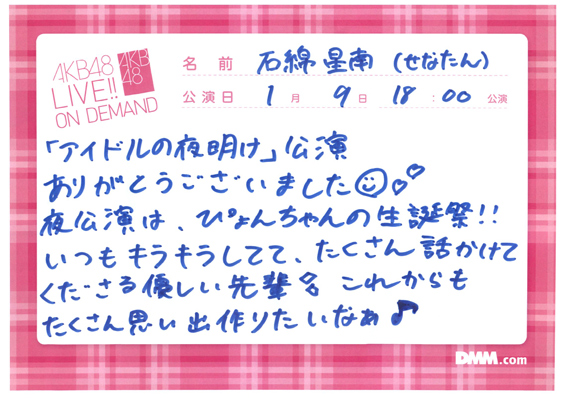 AKB48
LIVE!!
ON DEMAND
AKB
48
名前 石綿 星南 (せなたん)
公演日 1月 9日 18:00 公演
「アイドルの夜明け」公演
ありがとうございました
夜公演は、ぴょんちゃんの生誕祭!!
いつもキラキラしてて、たくさん話かけて
くださる優しい先輩 これからも
たくさん思い出作りたいなぁ♪
DMM.com